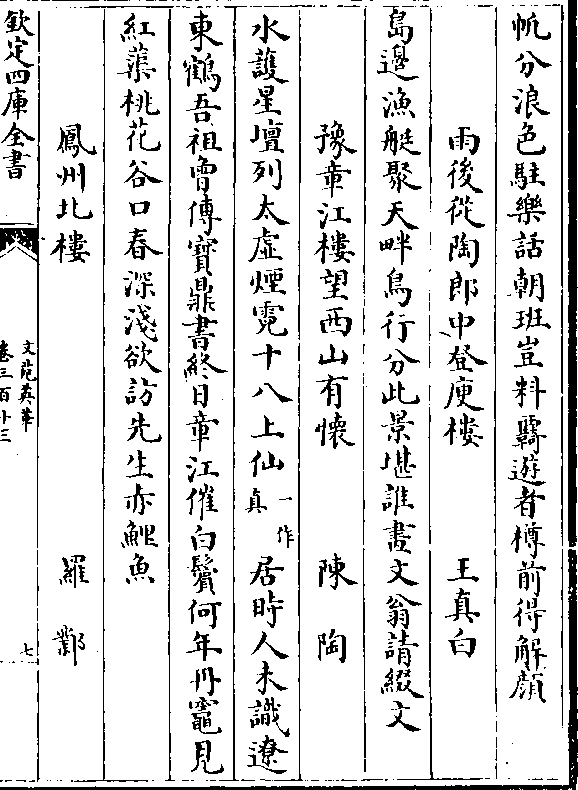 帆分浪色駐樂話朝班豈料羇遊者樽前得解顔
雨後從陶郎中登庾樓　王真白
島邊漁艇聚天畔鳥行分此景堪誰畫文翁請綴文
豫章江樓望西山有懷　陳陶
水護星壇列太虛煙霓十八上仙一作真居時人未識遼
東鶴吾祖曾傳寳鼎書終日章江催白鬢何年丹竈見
紅蕖桃花谷口春深淺欲訪先生赤鯉魚
鳳州北樓　羅鄴
欽定四庫全書
文苑英華
卷三百十三
七